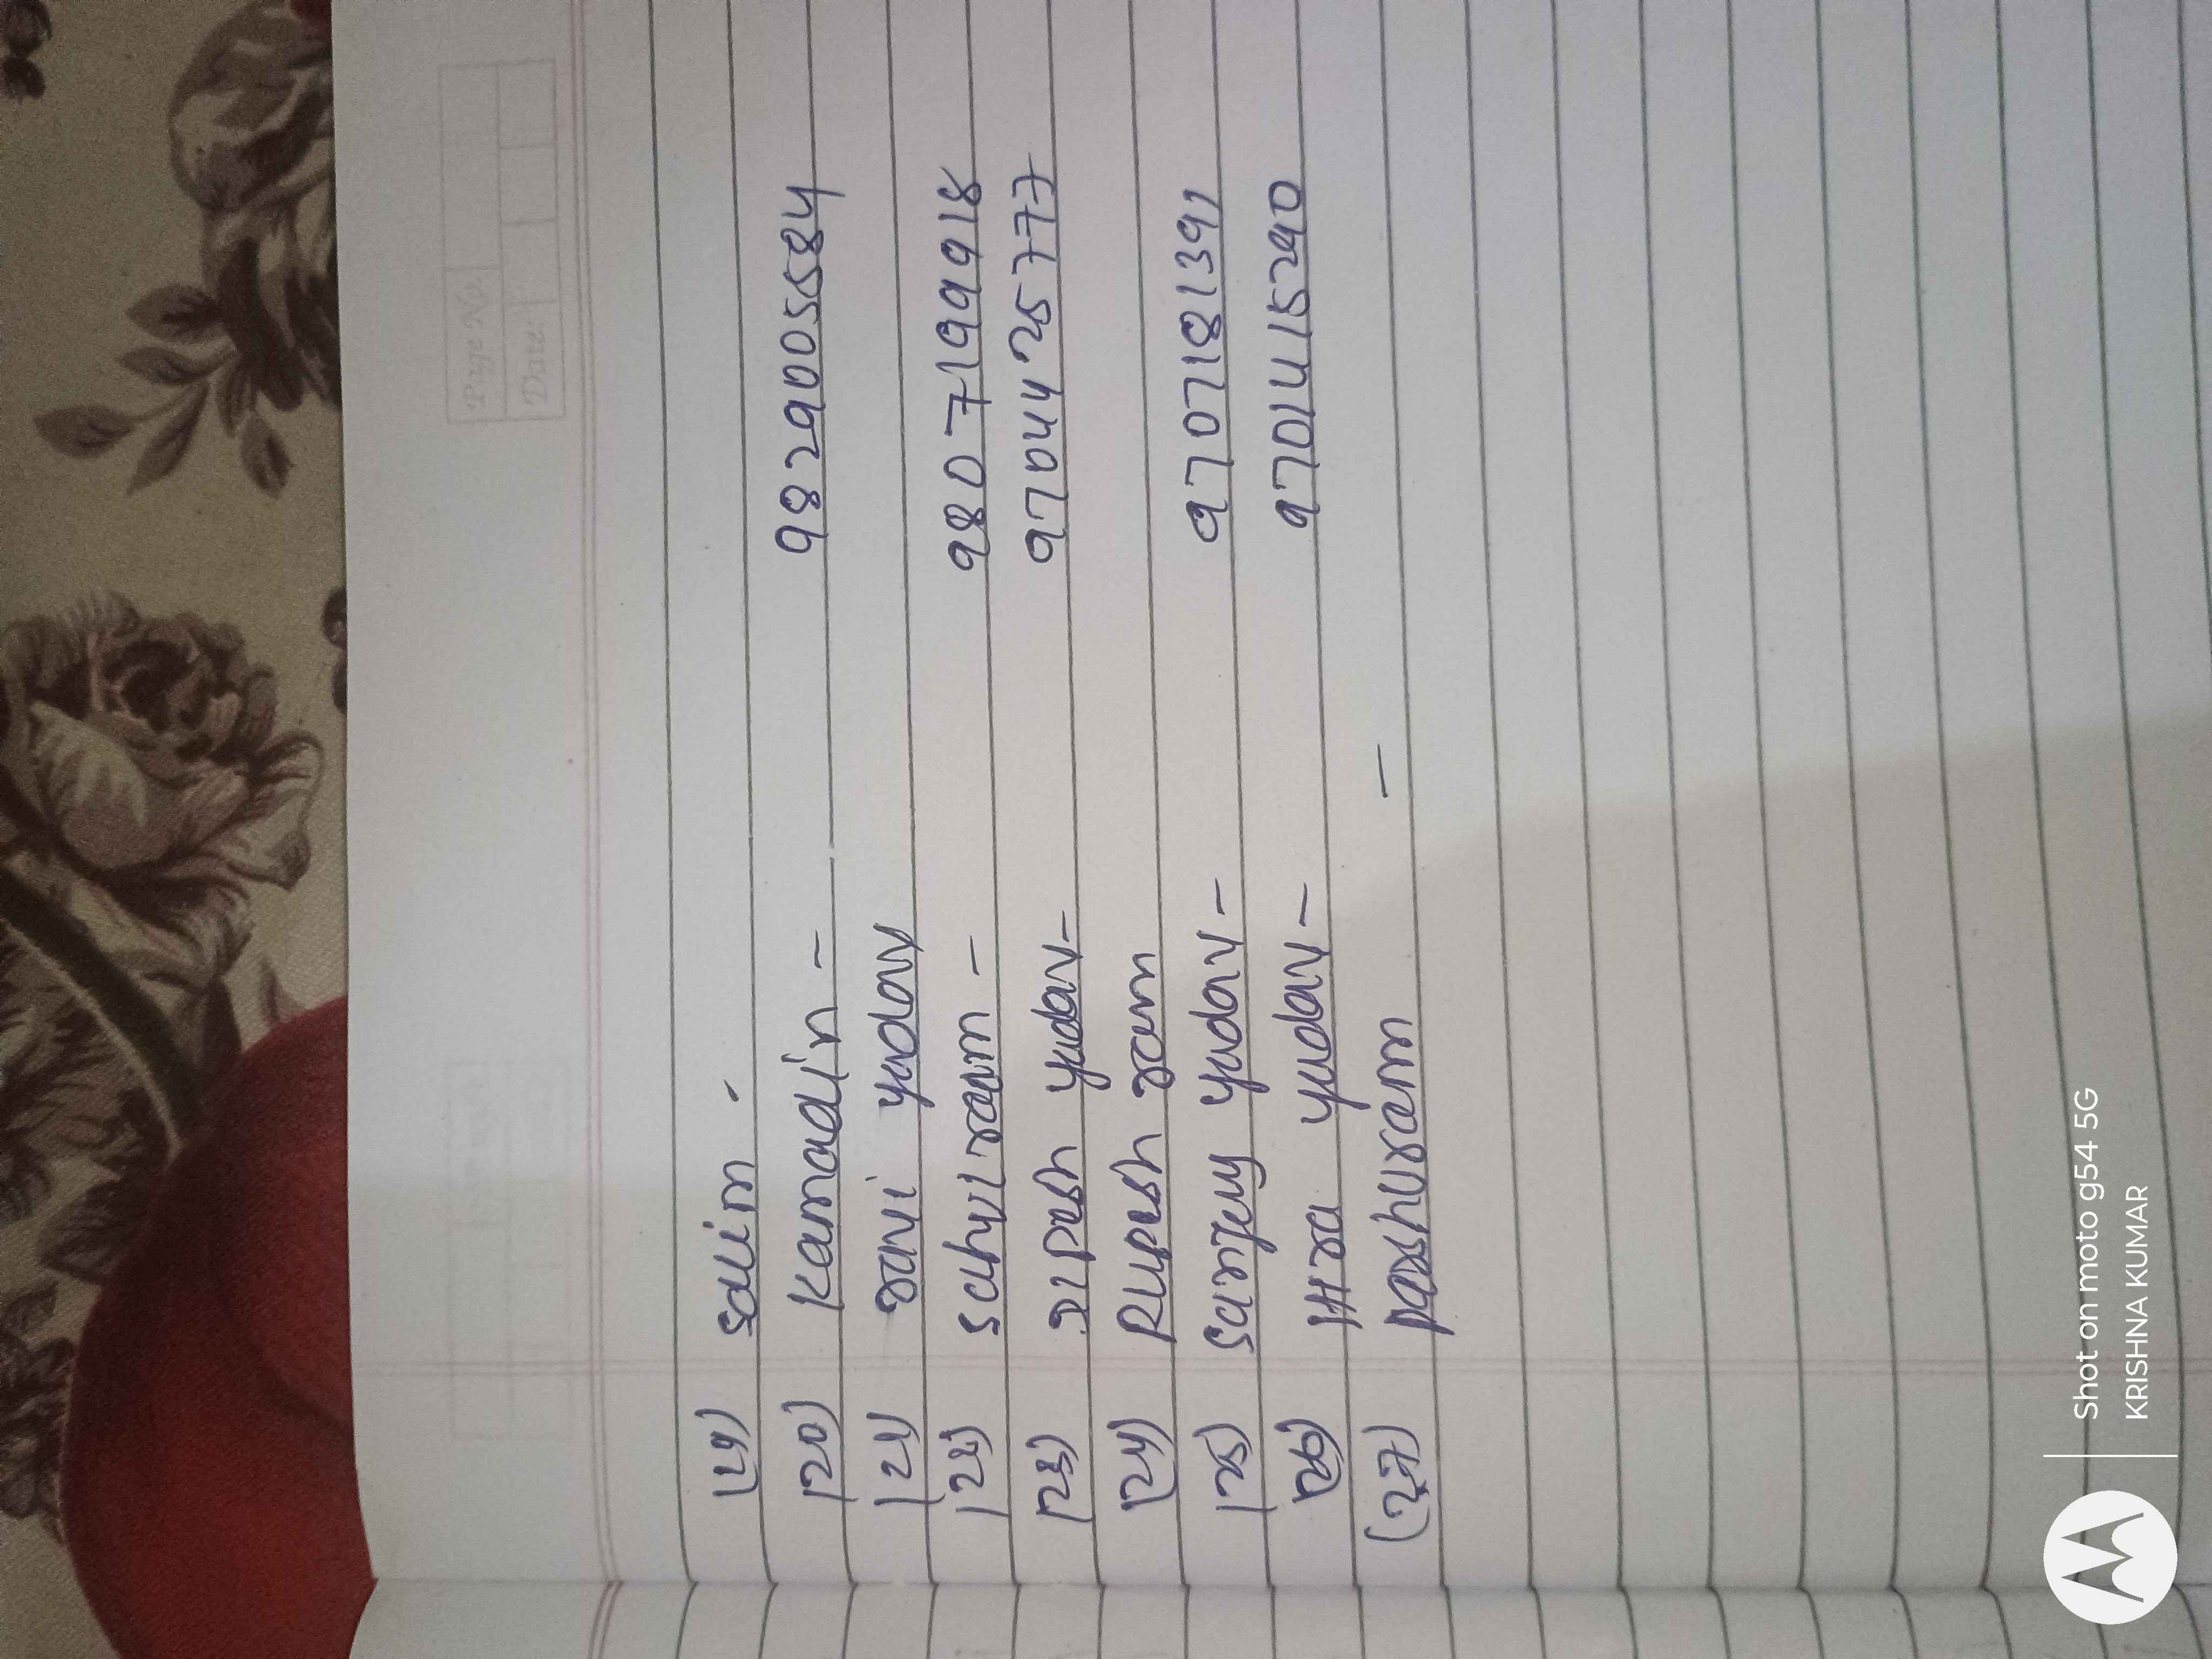 Page No.
Date:
(19) salim -
(20) Kamadin - 9829005584
(21) ravi yadav
(22) sahvi ram - 9807199918
(23) Dipesh yadav - 9704425777
(24) Rupesh ram
(25) sanjay yadav - 9707181391
(26) Hira yadav - 9701415290
(27) parshuram -
Shot on moto g54 5G
KRISHNA KUMAR